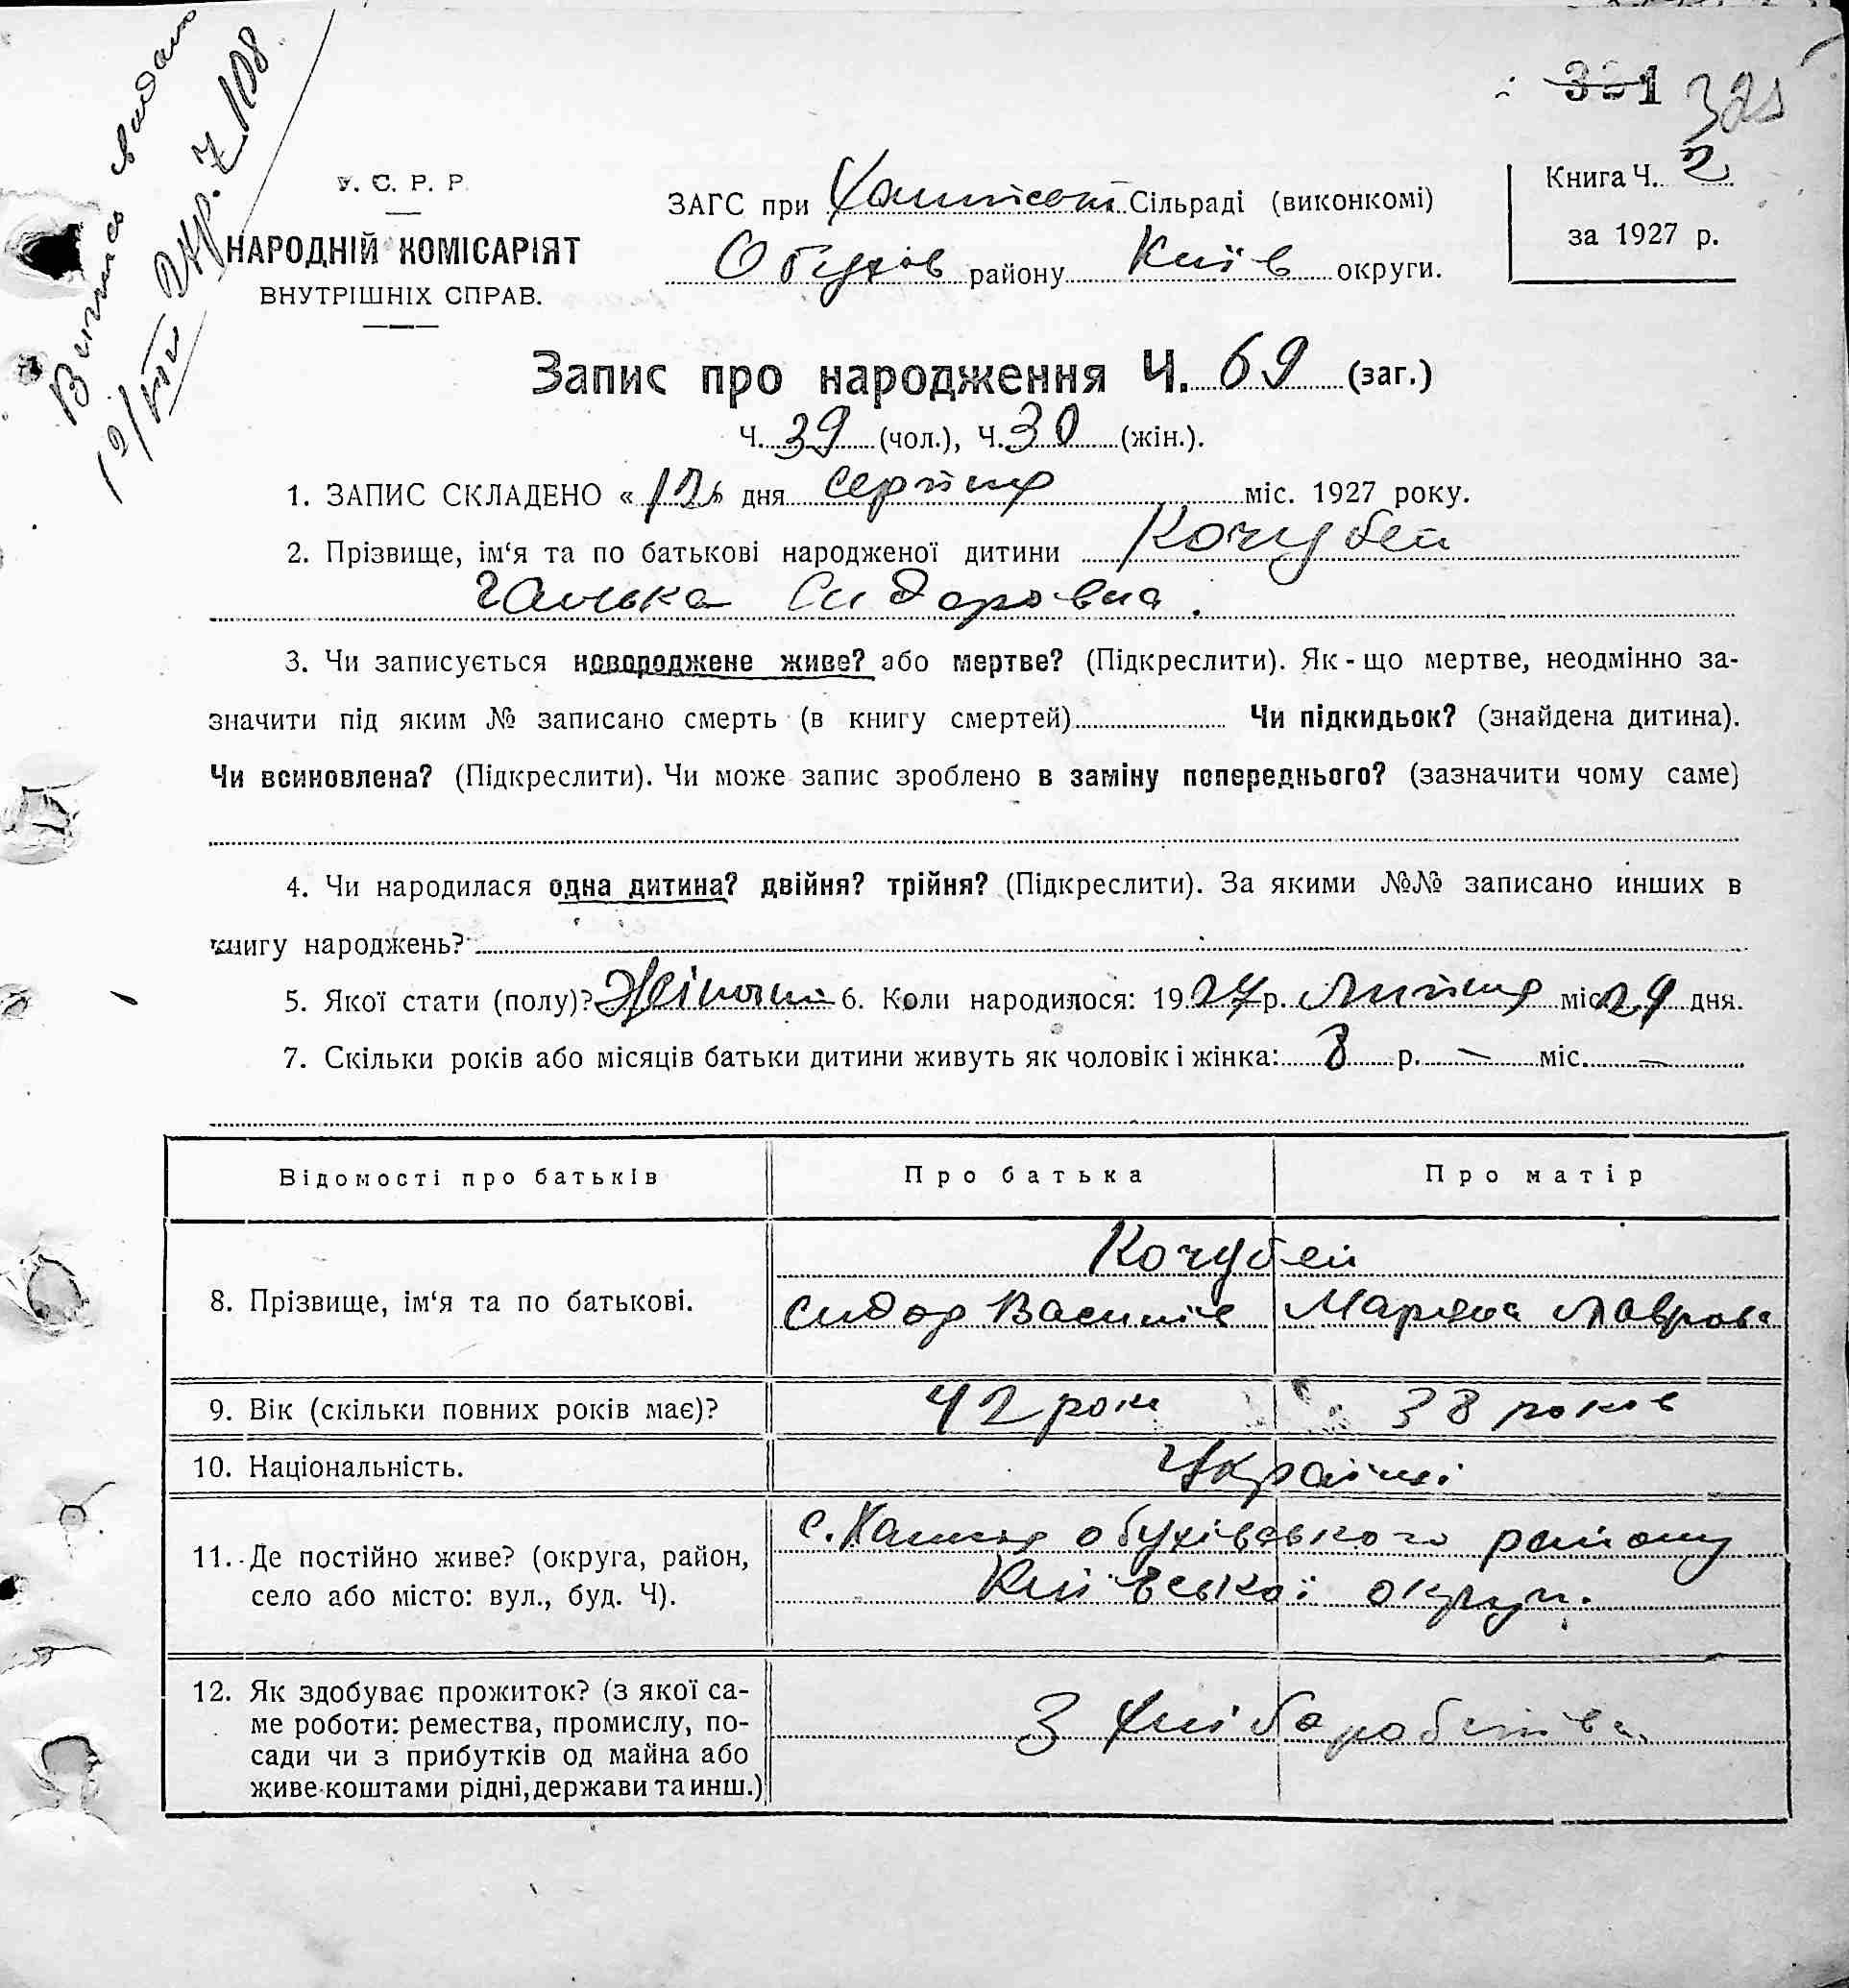 Випись видано
12/VIII 27 р. Ч 108
321 325
У. С. Р. Р.
НАРОДНІЙ КОМІСАРІЯТ
ВНУТРІШНІХ СПРАВ.
ЗАГС при Сільраді (виконкомі)
Обухов району Київ округи.
Книга Ч. 2
за 1927 р.
Запис про народження Ч. 69 (заг.)
Ч. 39 (чол.), Ч. 30 (жін.).
1. ЗАПИС СКЛАДЕНО « 12 » дня серпня міс. 1927 року.
2. Прізвище, ім‘я та по батькові народженої дитини Кочубей
Ганька Сидоровна.
3. Чи записується новороджене живе? або мертве? (Підкреслити). Як-що мертве, неодмінно за-
значити під яким № записано смерть (в книгу смертей) Чи підкидьок? (знайдена дитина).
Чи всиновлена? (Підкреслити). Чи може запис зроблено в заміну попереднього? (зазначити чому саме)
4. Чи народилася одна дитина? двійня? трійня? (Підкреслити). За якими №№ записано инших в
книгу народжень?
5. Якої стати (полу)? Жіночої 6. Коли народилося: 1927 р. Липня міс. 29 дня.
7. Скільки років або місяців батьки дитини живуть як чоловік і жінка: 8 р. — міс. —
Відомості про батьків Про батька Про матір
8. Прізвище, ім‘я та по батькові. Кочубей
Сидор Василів Маряна Лаврова
9. Вік (скільки повних років має)? 42 роки 38 років
10. Національність. Українці
11. Де постійно живе? (округа, район,
село або місто: вул., буд. Ч).
с. Обухівського району
Київської округи.
12. Як здобуває прожиток? (з якої са-
ме роботи: ремества, промислу, по-
сади чи з прибутків од майна або
живе-коштами рідні, держави та инш.)
З хліборобства